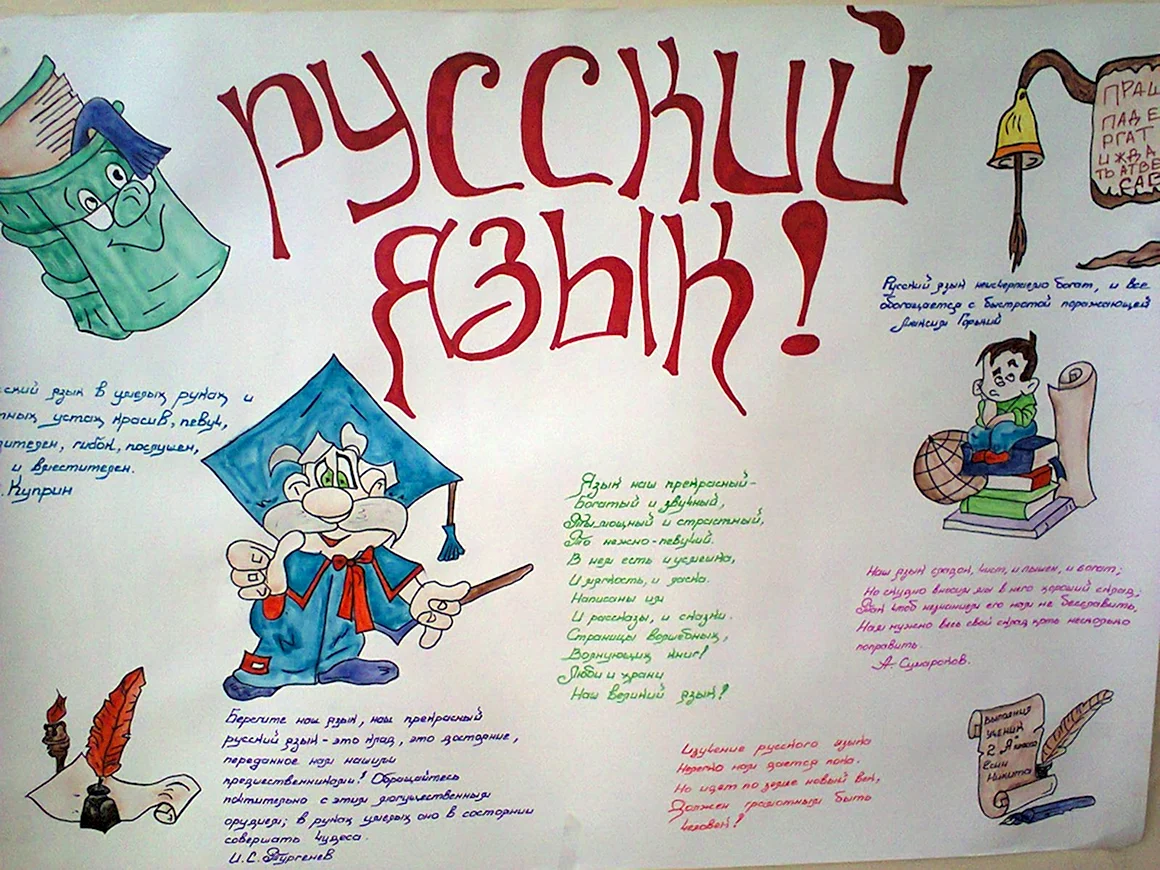 РУССКИЙ
ЯЗЫК!
ПРАШ
ПАДЕ
РГАТ
ИЖДА
ТЬ АТВЕ
САБ
Русский язык неисчерпаемо богат, и все
обогащается с быстратой поражающей
Максим Горький
ский язык в умелых руках и
тных устах красив, певуч,
зителен, гибок, послушен,
и вместителен.
Куприн
Язык наш прекрасный-
Богатый и звучный,
То мощный и страстный,
То нежно-певучий.
В нем есть и усмешка,
И мягкость, и ласка.
Написаны им
И рассказы, и сказки.
Страницы волшебных,
Волнующих книг!
Люби и храни
Наш великий язык!
Наш язык сладок, чист, и пышен, и богат;
Но скудно вносим мы в него хороший склад;
Так чтоб незнанием его нам не бесславить,
Нам нужно весь свой склад хоть несколько
поправить.
А. Сумароков.
Берегите наш язык, наш прекрасный
русский язык - это клад, это достояние,
переданное нам нашими
предшественниками! Обращайтесь
почтительно с этим могущественным
орудием; в руках умелых оно в состоянии
совершать чудеса.
И.С. Тургенев
Изучение русского языка
Нелегко нам дается пока.
Но идет по земле новый век,
Должен грамотным быть
человек!
Выполнил
ученик
2 "А" класса
Никита